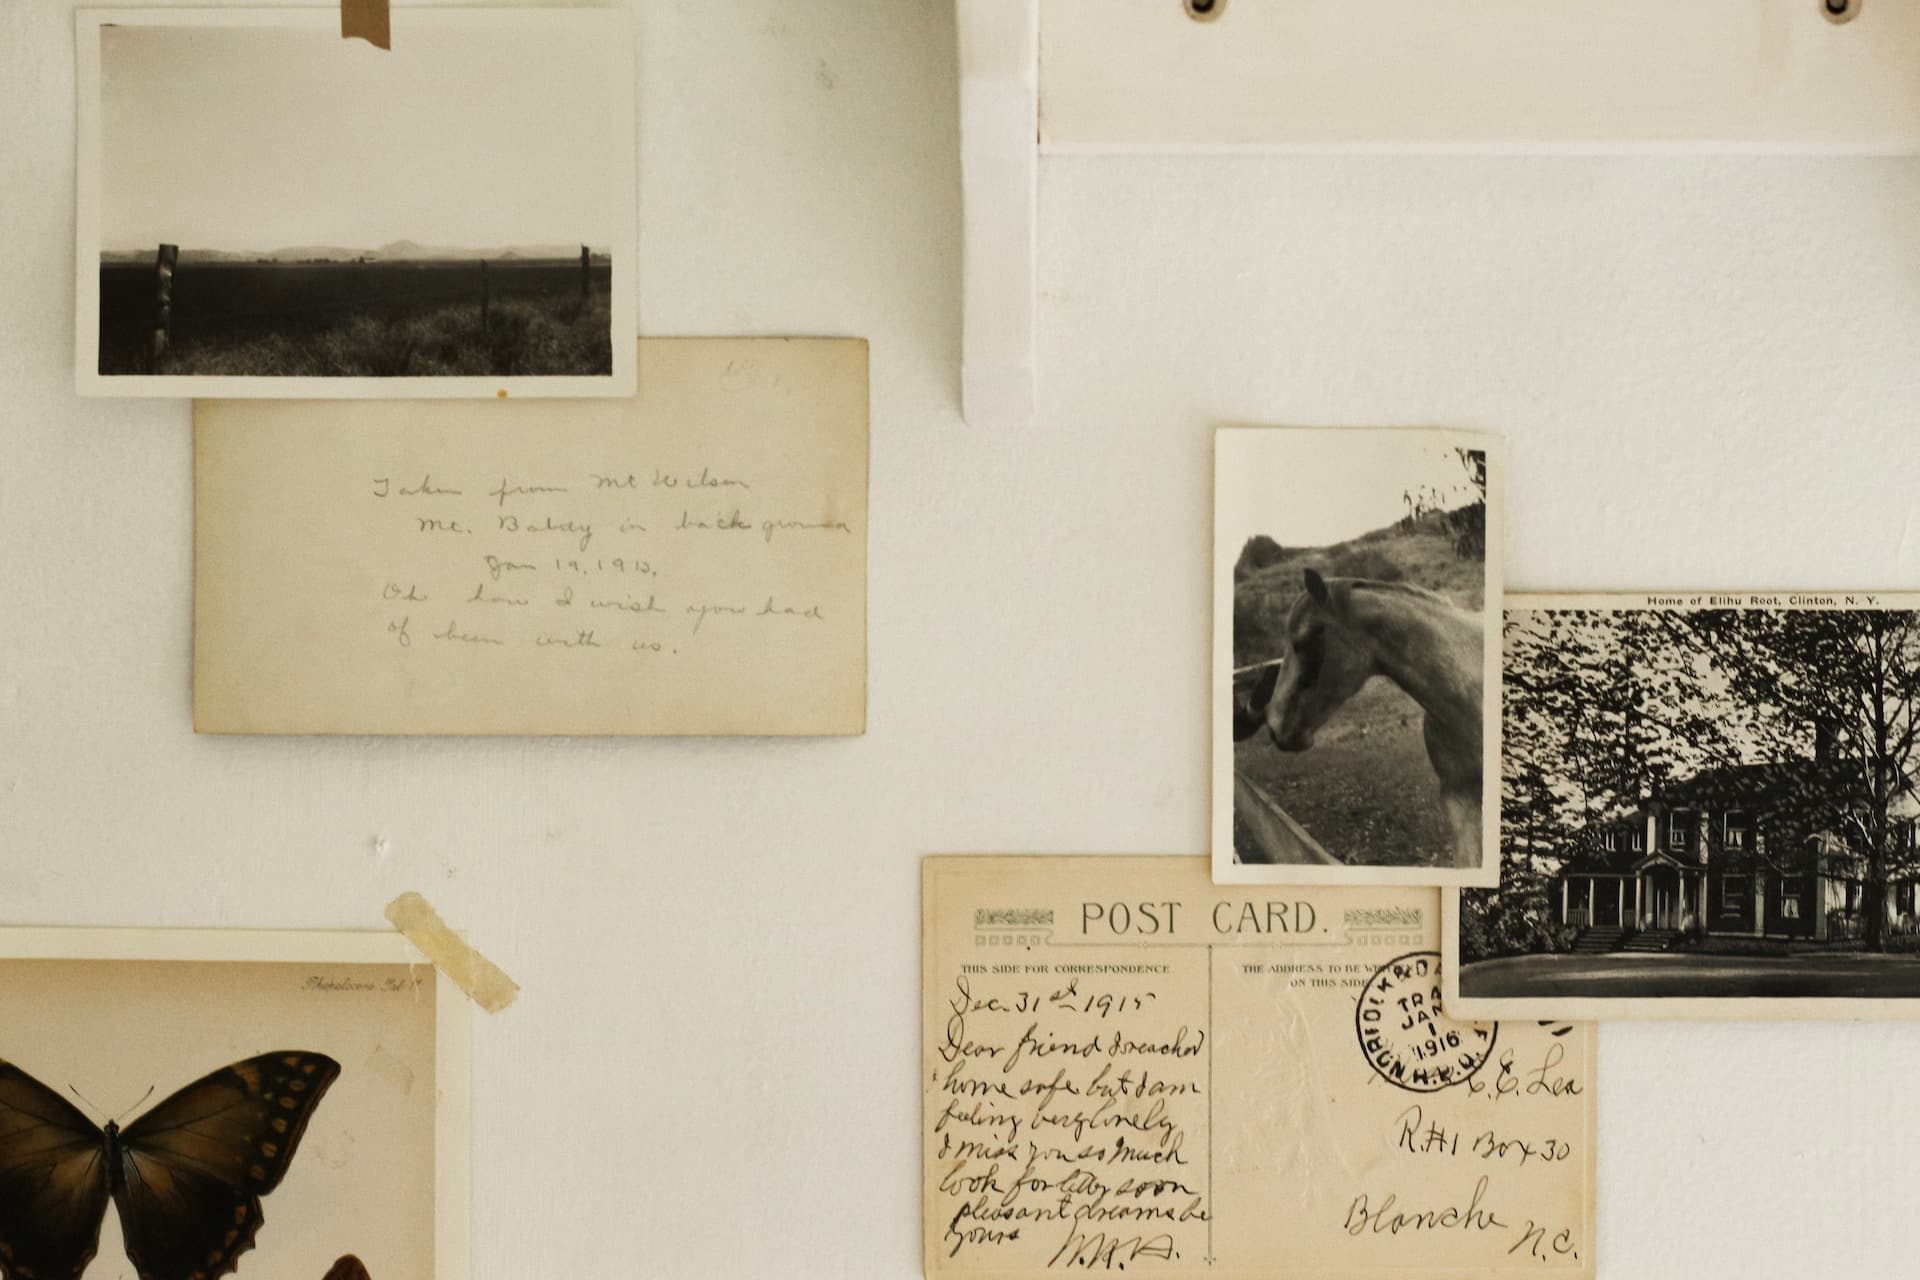 Taken from Mt Wilson
Mt. Baldy in back ground
Jan 19, 1913.
Oh how I wish you had
of been with us.
Home of Elihu Root, Clinton, N. Y.
POST CARD.
THIS SIDE FOR CORRESPONDENCE
THE ADDRESS TO BE
ON THIS SIDE
Dec. 31st 1915
Dear friend I reached
home safe but I am
feeling very lonely
I miss you so much
look for letter soon
pleasant dreams be
yours
NORFOLK
JAN
1
1916
C.E. Lea
R.#1 Box 30
Blanche
N.C.